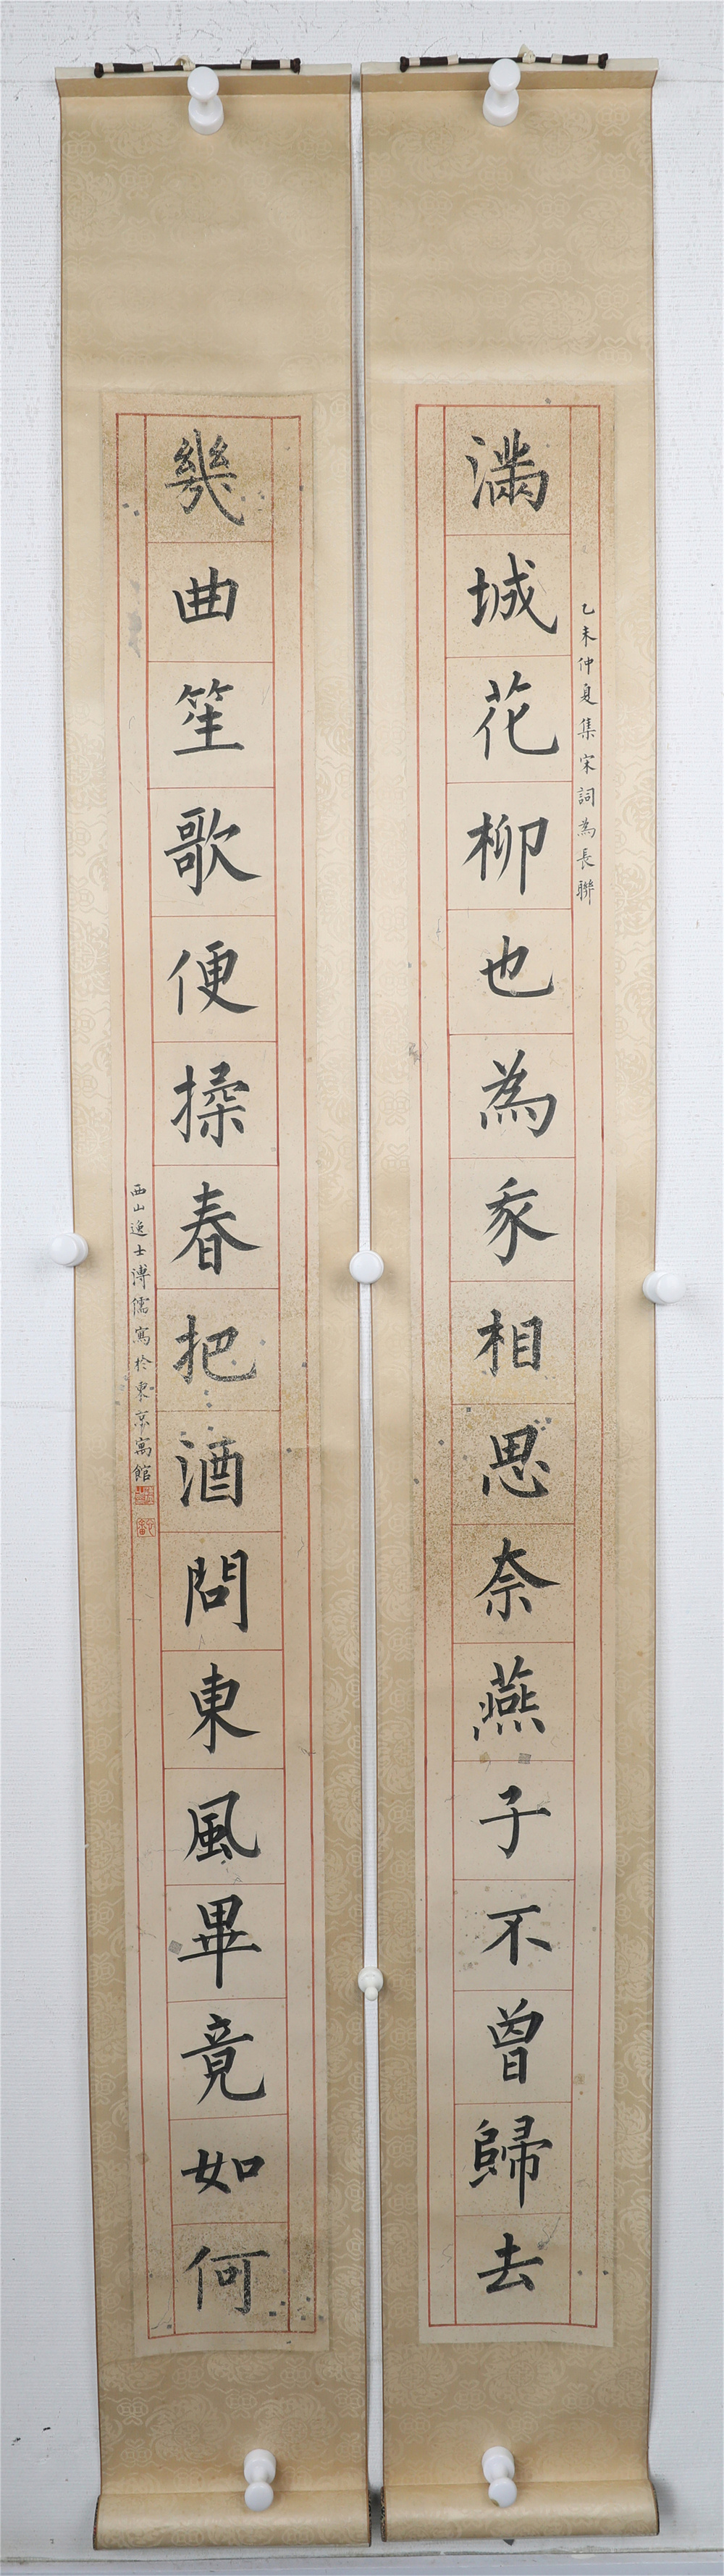 乙未仲夏集宋詞為長聯
滿城花柳也為相思奈燕子不曾歸去
幾曲笙歌便揉春把酒問東風畢竟如何
西山逸士溥儒寫於東京寓館